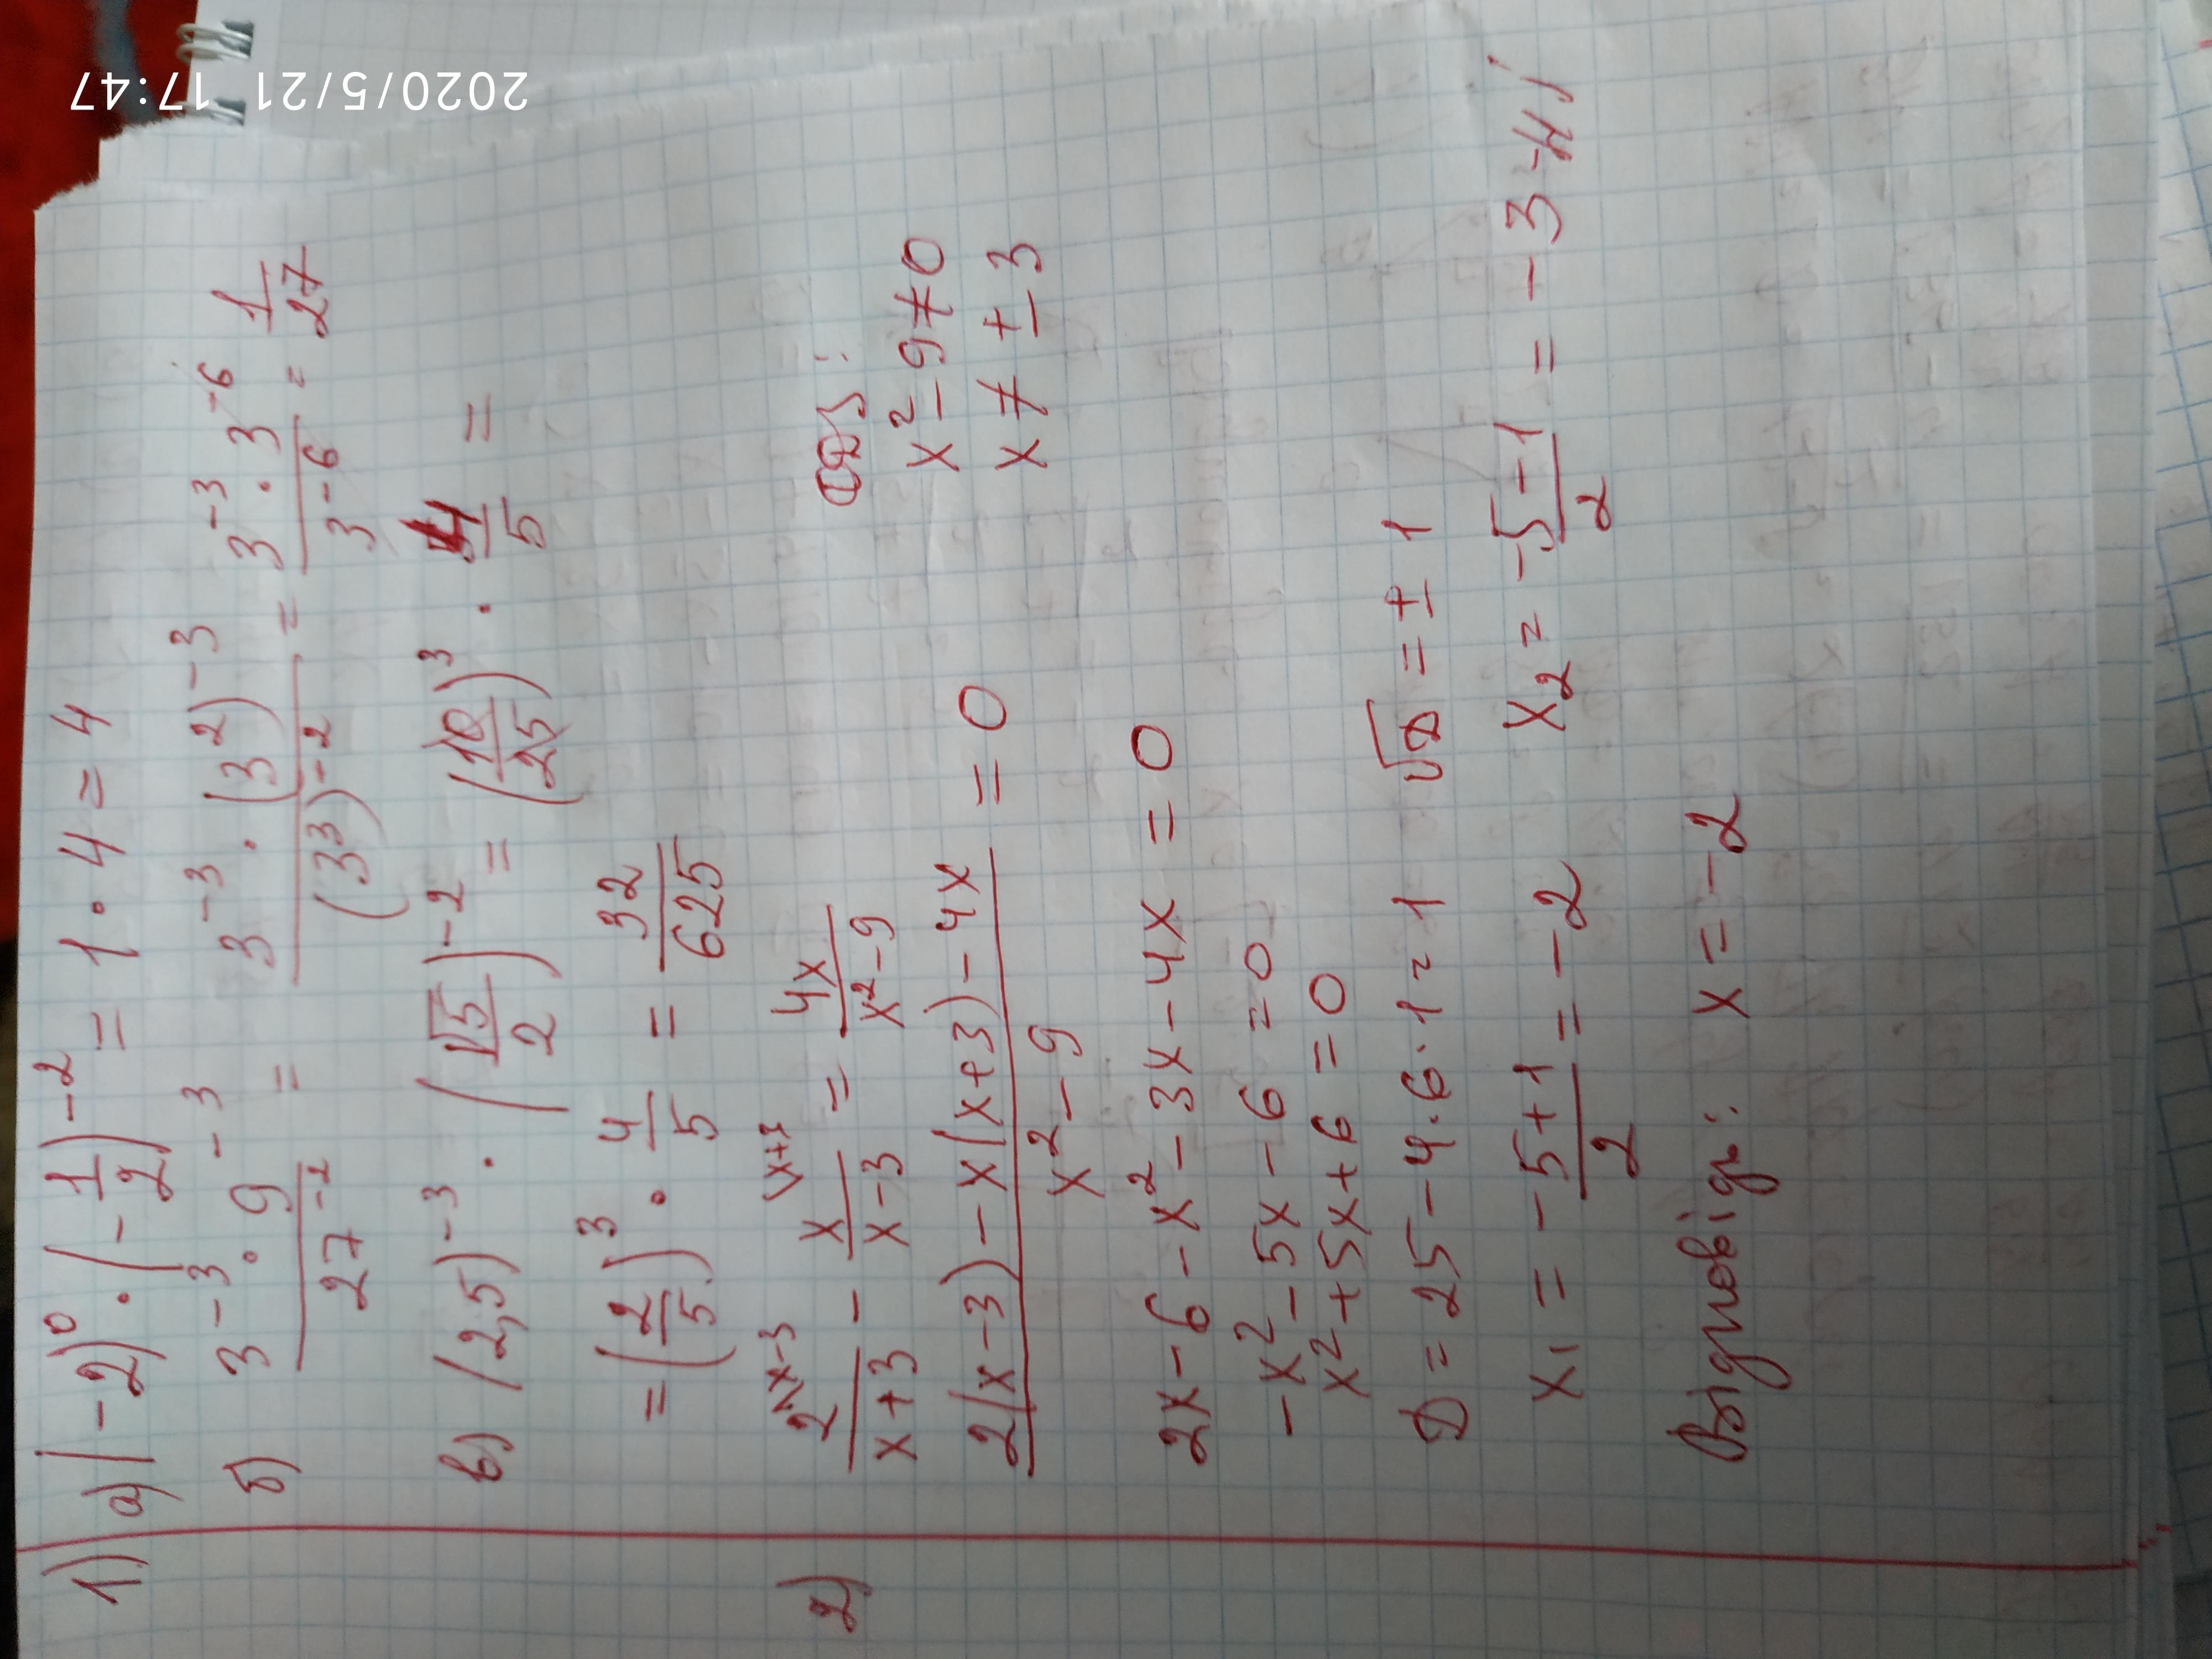 2020/5/21 17:47
1) а) (-2)⁰ · (-1/2)⁻² = 1 · 4 = 4
б) 3⁻³ · 9⁻³ / 27⁻² = 3⁻³ · (3²)⁻³ / (3³)⁻² = 3⁻³ · 3⁻⁶ / 3⁻⁶ = 1/27
в) (2,5)⁻³ · (√5/2)⁻² = (10/25)³ · 4/5 =
= (2/5)³ · 4/5 = 32/625
2) 2^(x-3 / x+3 - x^(x+3 / x-3 = 4x / x²-9
ОДЗ:
x²-9≠0
x ≠ ±3
2(x-3)-x(x+3)-4x / x²-9 = 0
2x-6-x²-3x-4x=0
-x²-5x-6=0
x²+5x+6=0
D=25-4·6·1=1 √D=±1
x₁ = -5+1/2 = -2 x₂= -5-1/2 = -3
Відповідь: x=-2